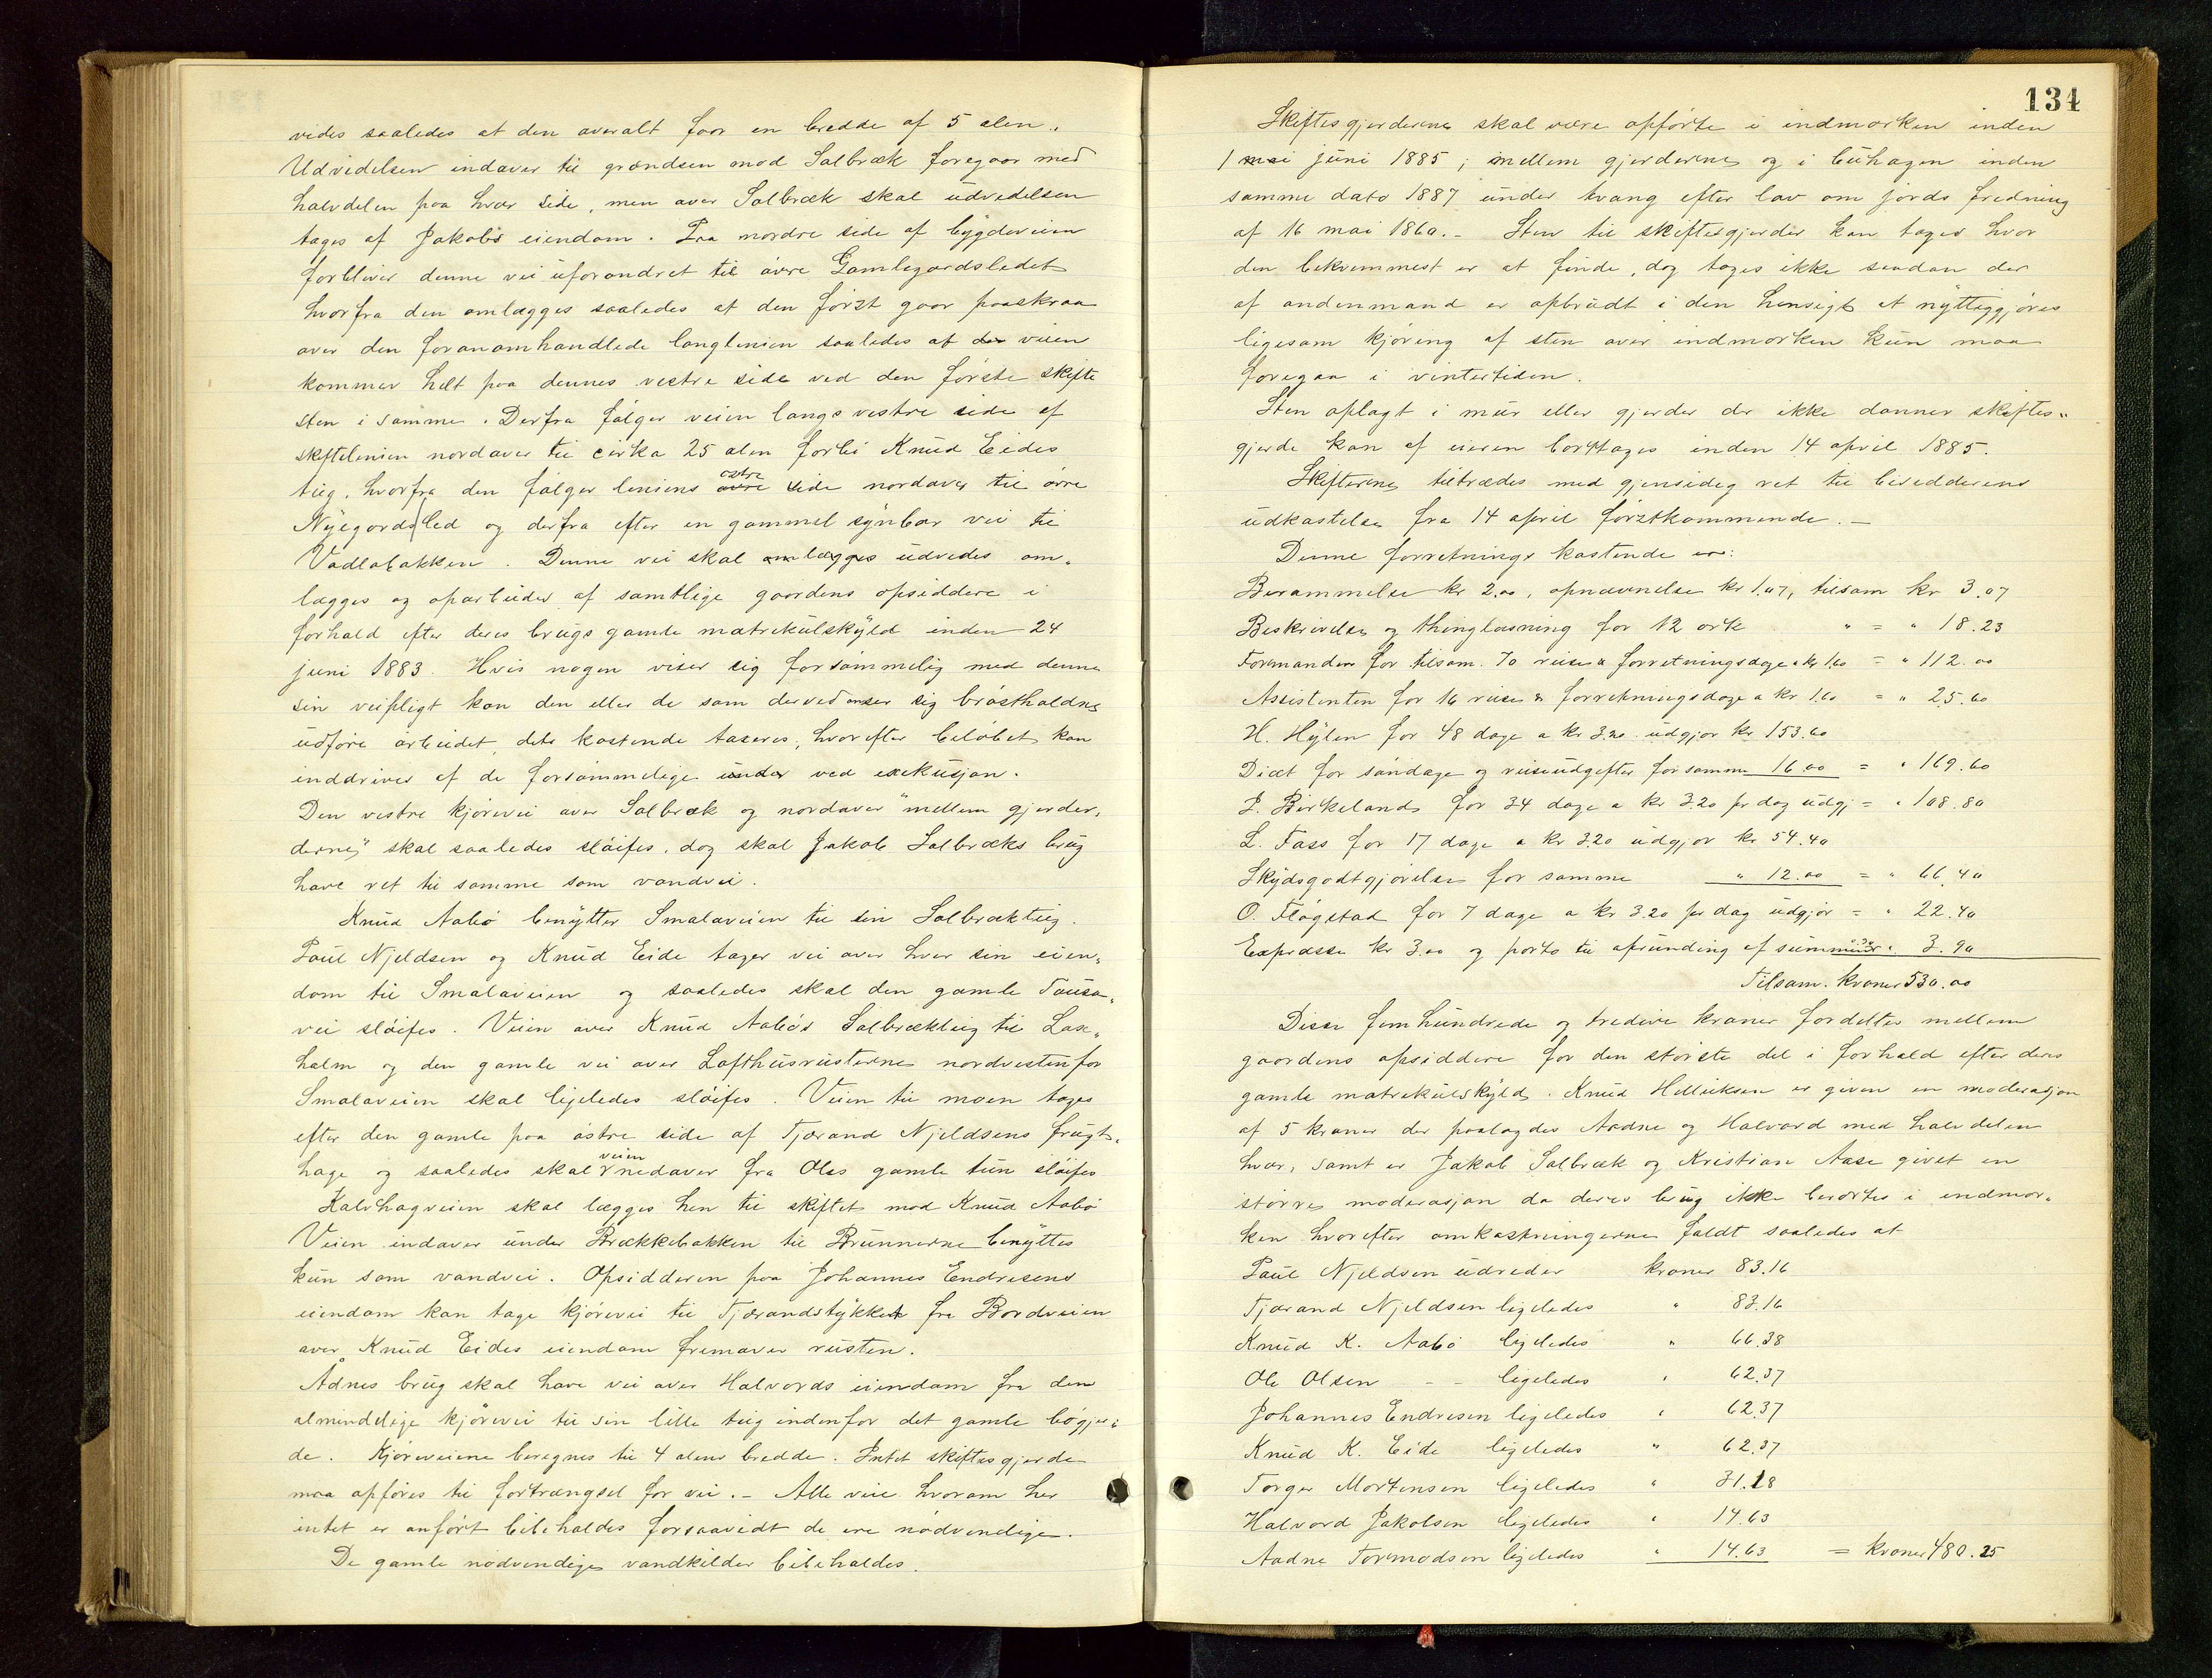 vides saaledes at den overalt faar en bredde af 5 alen.
Udvidelsen indover til grændsen mod Solbræk foregaar med
halvdelen paa hver side, men over Solbræk skal udvidelsen
tages af Jakobs eiendom. Fra nordre side af bygdeveien
forbliver denne vei uforandret til øvre Gamlegardsledet
hvorfra den omlægges saaledes at den først gaar paaskraa
over den foranomhandlede langlenien saaledes at den veien
kommer helt paa dennes vestre side ved den første skifte
sten i samme. Derfra følger veien langs vestre side af
skiftelenien nordover til cirka 25 alen forbi Knud Eides
teig, hvorfra den følger leniens østre side nordover til øvre
Nyegards led og derfra efter en gammel synbar vei til
Vadlabakken. Denne vei skal omlægges udvides om-
lægges og oparbeides af samtlige gaardens opsiddere i
forhold efter deres brugs gamle matrikulskyld inden 24
juni 1883. Hvis nogen viser sig forsømmelig med denne
sin veipligt kan den eller de som derved anser sig brøstholdne
udføre arbeidet, dets kostende taxeres, hvorefter beløbet kan
inddrives af de forsømmelige under ved exekusjon.
Den vestre kjørevei over Solbræk og nordover "mellem gjerder-
derne" skal saaledes sløifes, dog skal Jakob Solbræks brug
have ret til samme som vandvei.
Knud Aabø benytter Smalaveien til sin Solbrækteig.
Poul Njeldsen og Knud Eide tager vei over hver sin eien-
dom til Smalaveien og saaledes skal den gamle Tousa-
vei sløifes. Veien over Knud Aabøs Solbrækteig til Lax-
holm og den gamle vei over Lofthusrusterne nordvestenfor
Smalaveien skal ligeledes sløifes. Veien til moen tages
efter den gamle paa østre side af Tjerand Njeldsens frugt-
hage og saaledes skal veien nedover fra Oles gamle tun sløifes
Kalvhagveien skal lægges hen til skiftet mod Knud Aabø
Veien indover under Brækkebakken til Brunnerne benyttes
kun som vandvei. Opsidderen paa Johannes Endresens
eiendom kan tage kjørevei til Tjærandstykket fra Bordveien
over Knud Eides eiendom fremover rusten.
Ådnes brug skal have vei over Halvords eiendom fra den
almindelige kjørevei til sin lille teig indenfor det gamle bøgjer-
de. Kjøreveiene beregnes til 4 alens bredde. Intet skiftesgjerde
maa opføres til fortrængsel for vei. - Alle veie hvorom her
intet er anført bibeholdes forsaavidt de ere nødvendige.
De gamle nødvendige vandkilder bibeholdes.
134
Skiftesgjerderne skal være opførte i indmarken inden
1 mai juni 1885; mellem gjerderne og i buhagen inden
samme dato 1887 under tvang efter lov om jords fredning
af 16 mai 1860. - Sten til skiftesgjerder kan tages hvor
den bekvemmest er at finde, dog tages ikke saadan der
af andenmand er opbrudt i den hensigt at nyttiggjøres
ligesom kjøring af sten over indmarken kun maa
foregaa i vintertiden.
Sten oplagt i mur eller gjerder der ikke danner skiftes-
gjerde kan af eieren borttages inden 14 april 1885.
Skifterne tiltrædes med gjensidig ret til besidderens
udkastelse fra 14 april førstkommende. -
Denne forretnings kostende er:
Berammelse kr 2.00, opnævnelse kr 1.07, tilsam kr 3.07
Beskrivelse og thinglæsning for 12 ark " = " 18.23
Formanden for tilsam. 70 reise & forretningsdage a kr 1.60 = " 112.00
Assistenten for 16 reise & forretningsdage a kr 1.60 = " 25.60
H. Hylen for 48 dage a kr 3.20 udgjør kr 153.60
Diæt for søndage og reiseudgifter for samme 16.00 = " 169.60
P. Birkelands for 34 dage a kr 3.20 pr dag udgj = " 108.80
L. Fass for 17 dage a kr 3.20 udgjør kr 54.40
Skydsgodtgjørelse for samme " 12.00 = " 66.40
O. Fløgstad for 7 dage a kr 3.20 pr dag udgjør = " 22.40
Expresse kr 3.00 og porto til afrunding af summer " 3.90
Tilsam. kroner 530.00
Disse femhundrede og tredive kroner fordeltes mellem
gaardens opsiddere for den største del i forhold efter deres
gamle matrikulskyld. Knud Helliksen er given en moderasjon
af 5 kroner der paalagdes Aadne og Halvord med halvdelen
hver, samt er Jakob Solbræk og Kristian Aase givet en
større moderasjon da deres brug ikke berørtes i indmar-
ken hvorefter omkostningerne faldt saaledes at
Poul Njeldsen udreder kroner 83.16
Tjærand Njeldsen ligeledes " 83.16
Knud K. Aabø ligeledes " 66.38
Ole Olsen - - ligeledes " 62.37
Johannes Endresen ligeledes " 62.37
Knud K. Eide ligeledes " 62.37
Torger Mortensen ligeledes " 31.18
Halvord Jakobsen ligeledes " 14.63
Aadne Tormodsen ligeledes " 14.63 = kroner 480.25